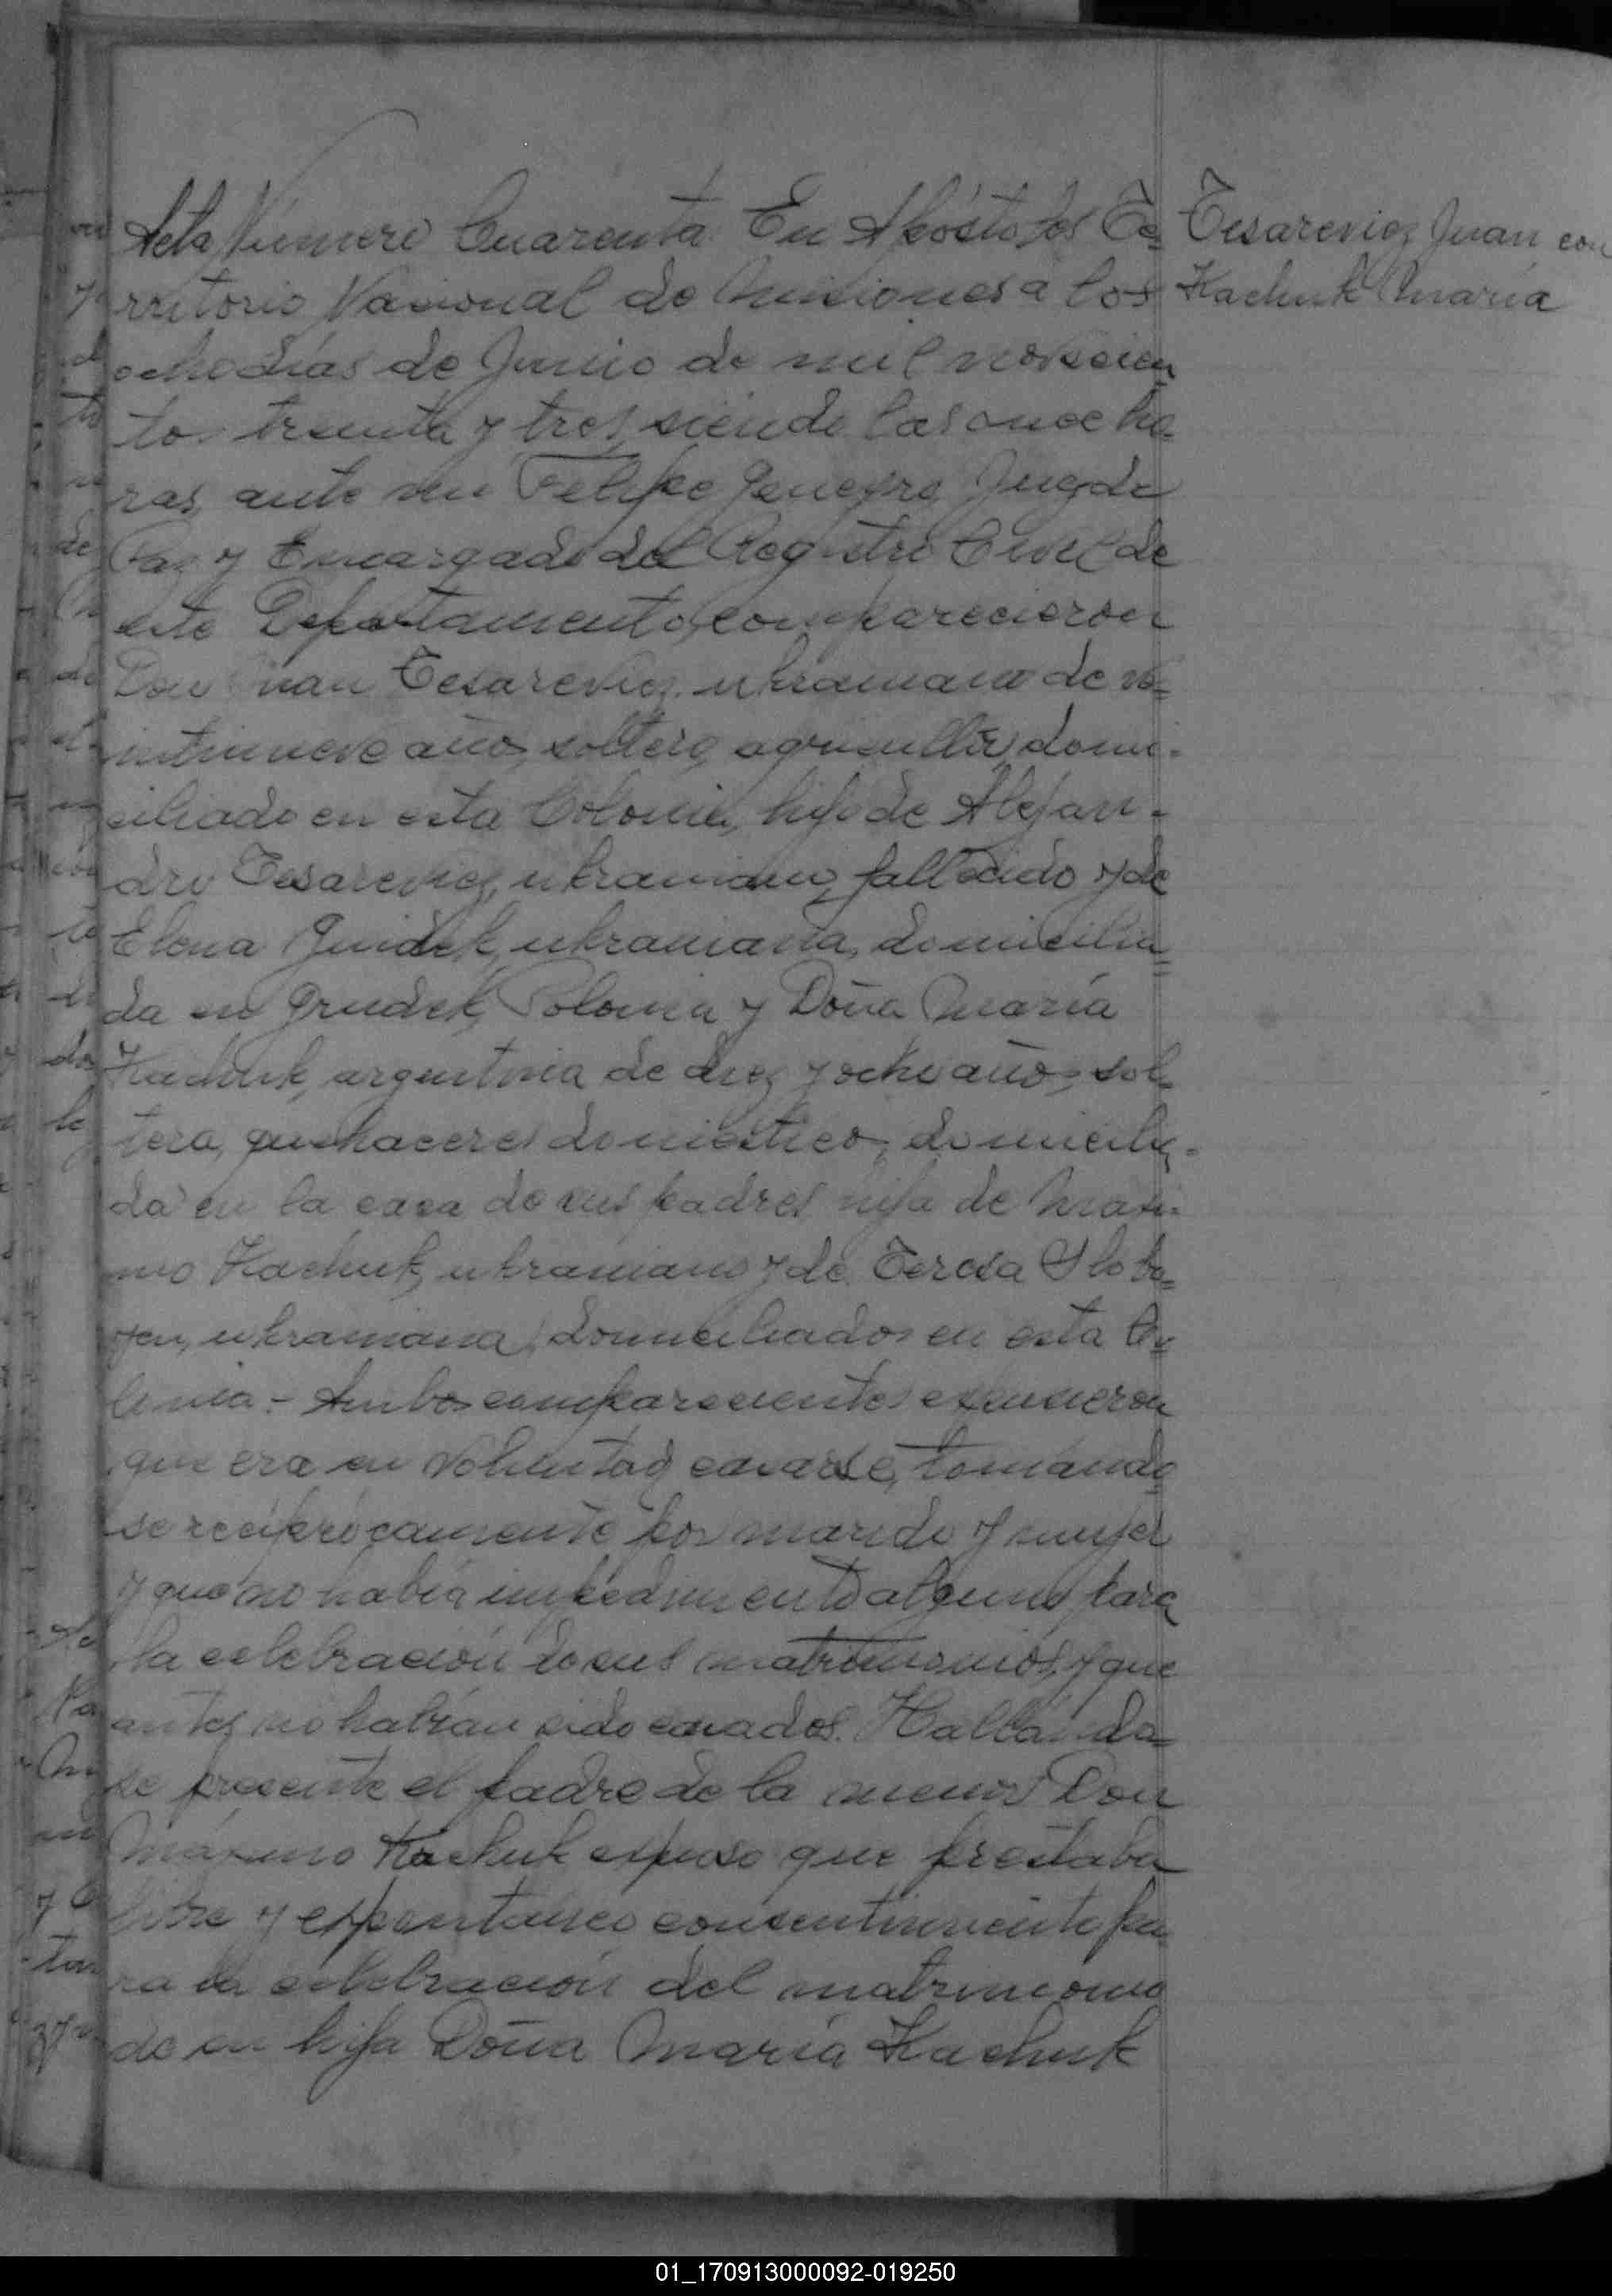 Acta Número Cuarenta. En Apóstoles Te=
rritorio Nacional de Misiones a los
ocho días de Junio de mil novecien
tos treinta y tres, siendo las once ho=
ras, ante mi Felipe Juez de
Paz y Encargado del Registro Civil de
este Departamento, comparecieron
Don Juan Tesarevicz, ukraniano de ve=
intinueve años, soltero, agricultor, domi-
ciliado en esta Colonia, hijo de Alejan-
dro Tesarevicz, ukraniano, fallecido y de
Elena ukraniana, domicilia=
da en Grudek, Polonia y Doña María
Kachuk, argentina de diez y ocho años, sol=
tera, quehaceres domésticos, domicilia-
da en la casa de sus padres hija de Maxi-
mo Kachuk, ukraniano y de Teresa Slobo=
ukraniana, domiciliados en esta Co=
lonia.- Ambos comparecientes expusieron
que era su voluntad casarse, tomando=
se recíprocamente por marido y mujer
y que no había impedimento alguno para
la celebración de sus matrimonios, y que
antes no habían sido casados. Hallánda=
se presente el padre de la menor Don
Máximo Kachuk expuso que prestaba
libre y espontaneo consentimiento pa
ra la celebración del matrimonio
de su hija Doña María Kachuk
Tesarevicz Juan con
Kachuk María
01_170913000092-019250